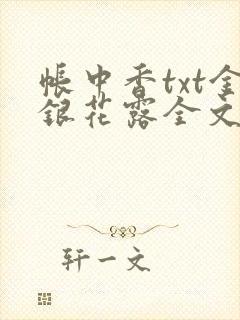 帐中香txt金
银花露全文
轩一文